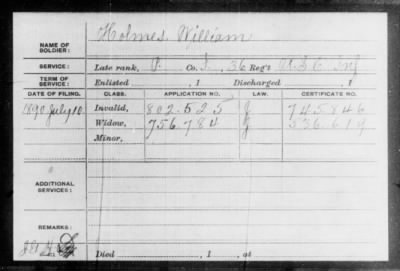 NAME OF SOLDIER: Holmes, William
SERVICE: Late rank, P. Co. I, 36 Reg't U.S.C. Inf
TERM OF SERVICE: Enlisted , 1 Discharged , 1
DATE OF FILING. CLASS. APPLICATION NO. LAW. CERTIFICATE NO.
1890 July 10 Invalid, 802.525 J 745846
Widow, 756.784 J 536.619
Minor,
ADDITIONAL SERVICES:
REMARKS:
Died , 1 , at